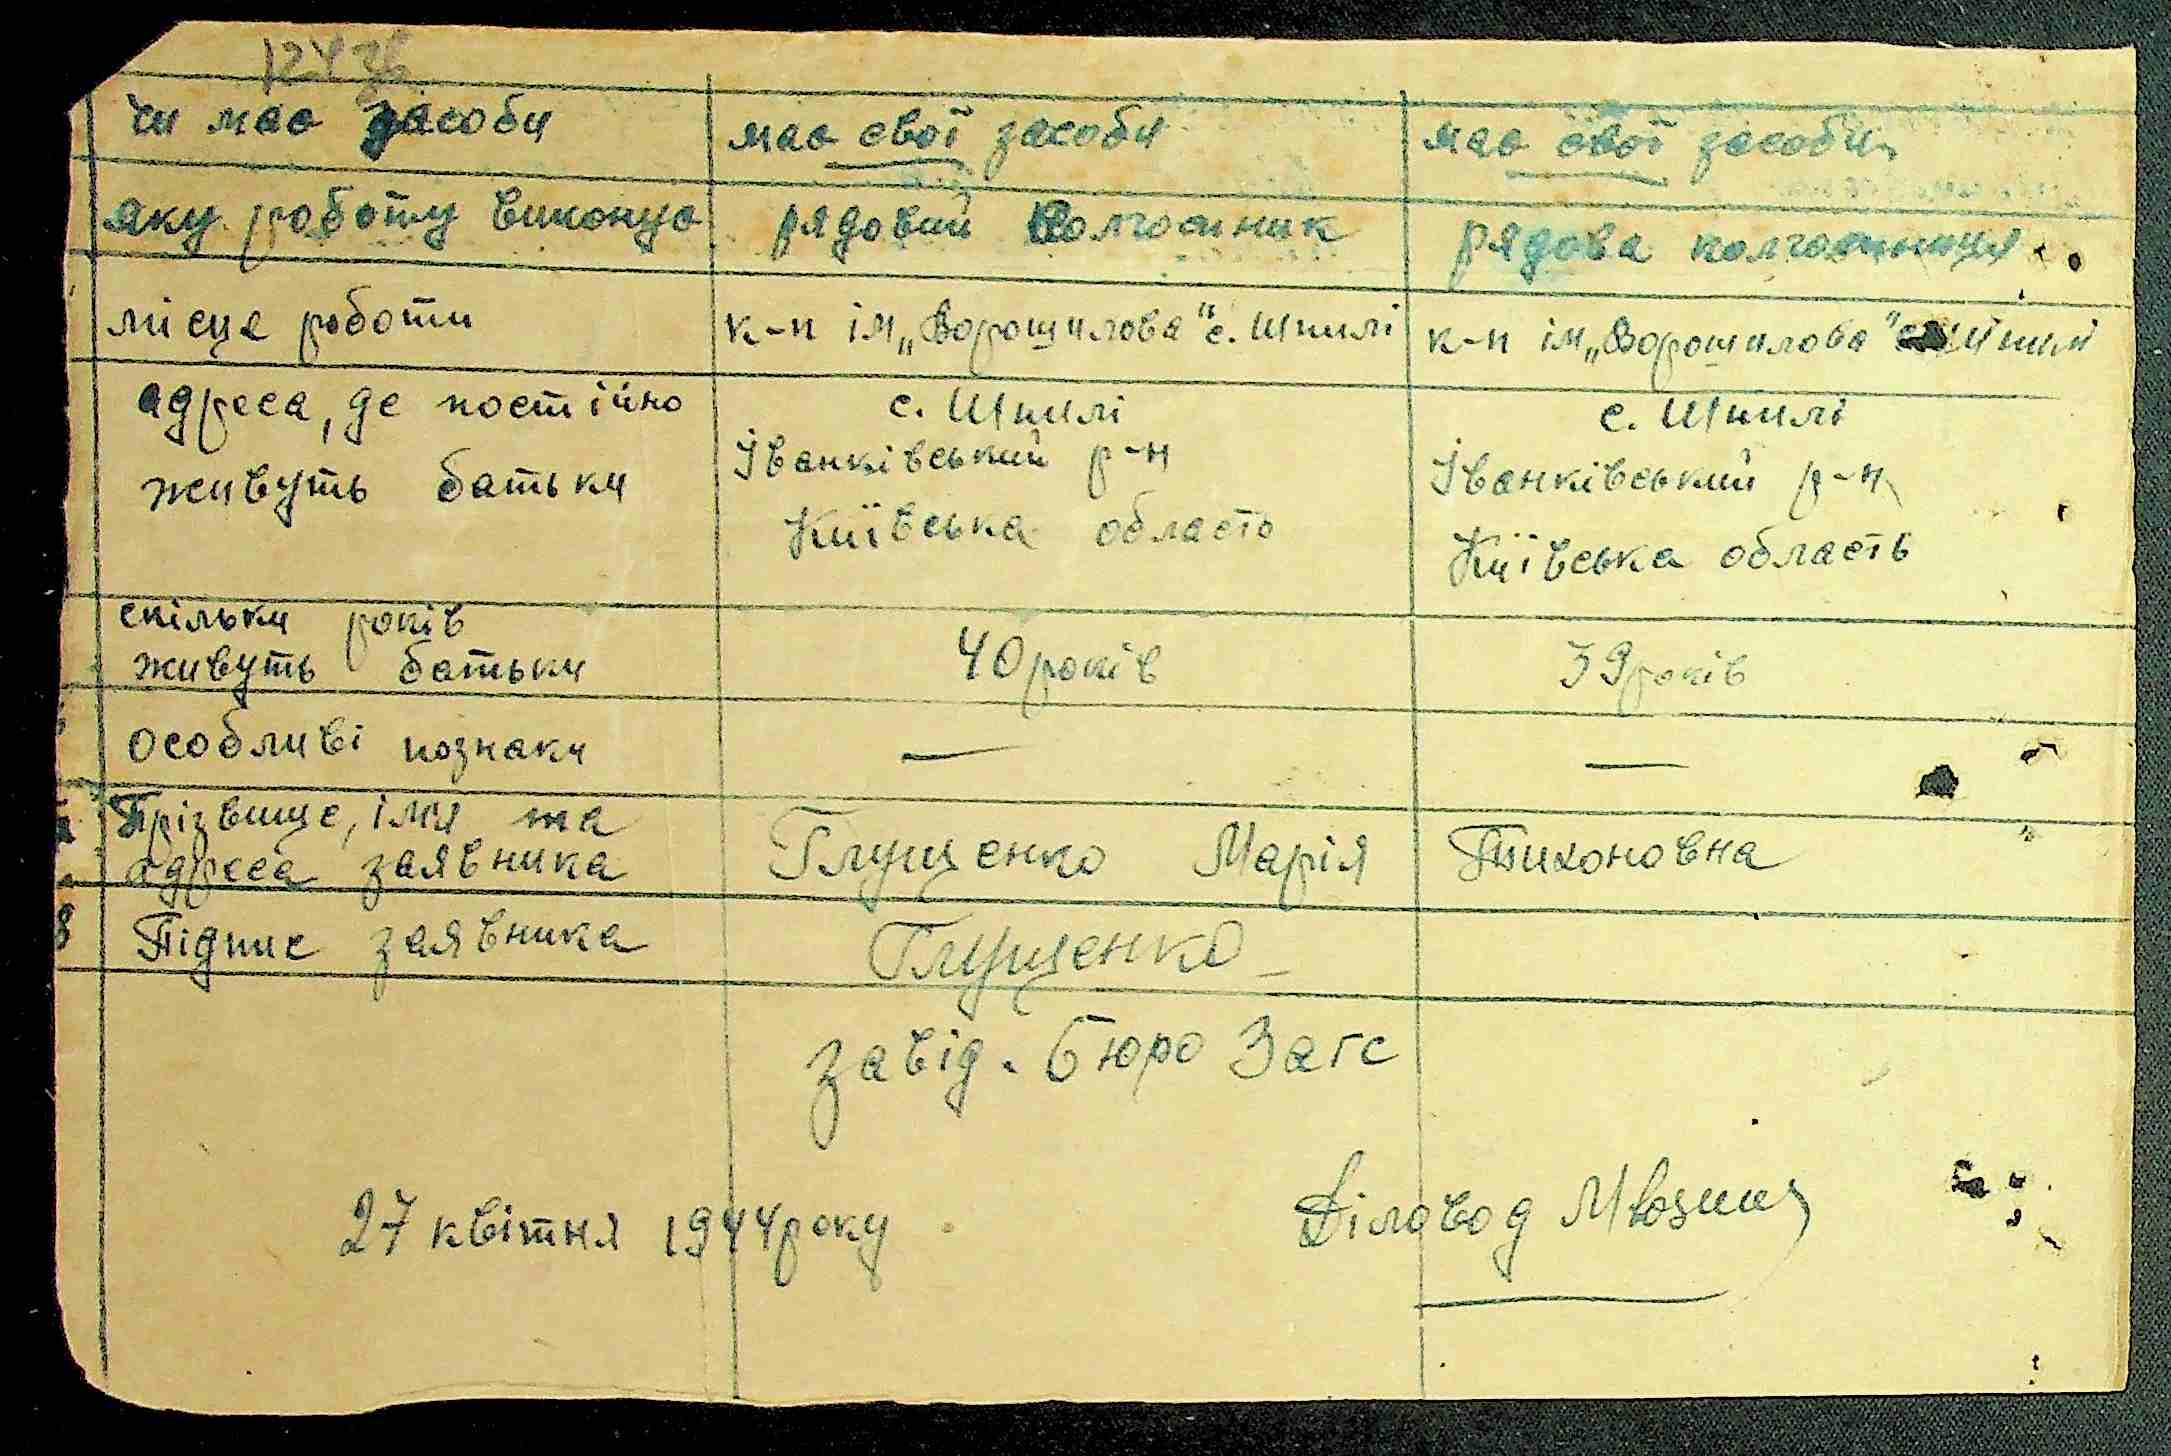 124 зв
чи має засоби
має свої засоби
має свої засоби
яку роботу виконує
рядовий колгоспник
рядова колгоспниця
місце роботи
к-п ім „Ворошилова" с. Шпилі
к-п ім „Ворошилова" с. Шпилі
адреса, де постійно
живуть батьки
с. Шпилі
Іванківський р-н
Київська область
с. Шпилі
Іванківський р-н
Київська область
скільки років
живуть батьки
40 років
39 років
особливі познаки
—
—
Прізвище, імя та
адреса заявника
Глущенко Марія Тихоновна
Підпис заявника
Глущенко
завід. бюро Загс
27 квітня 1944 року
Діловод